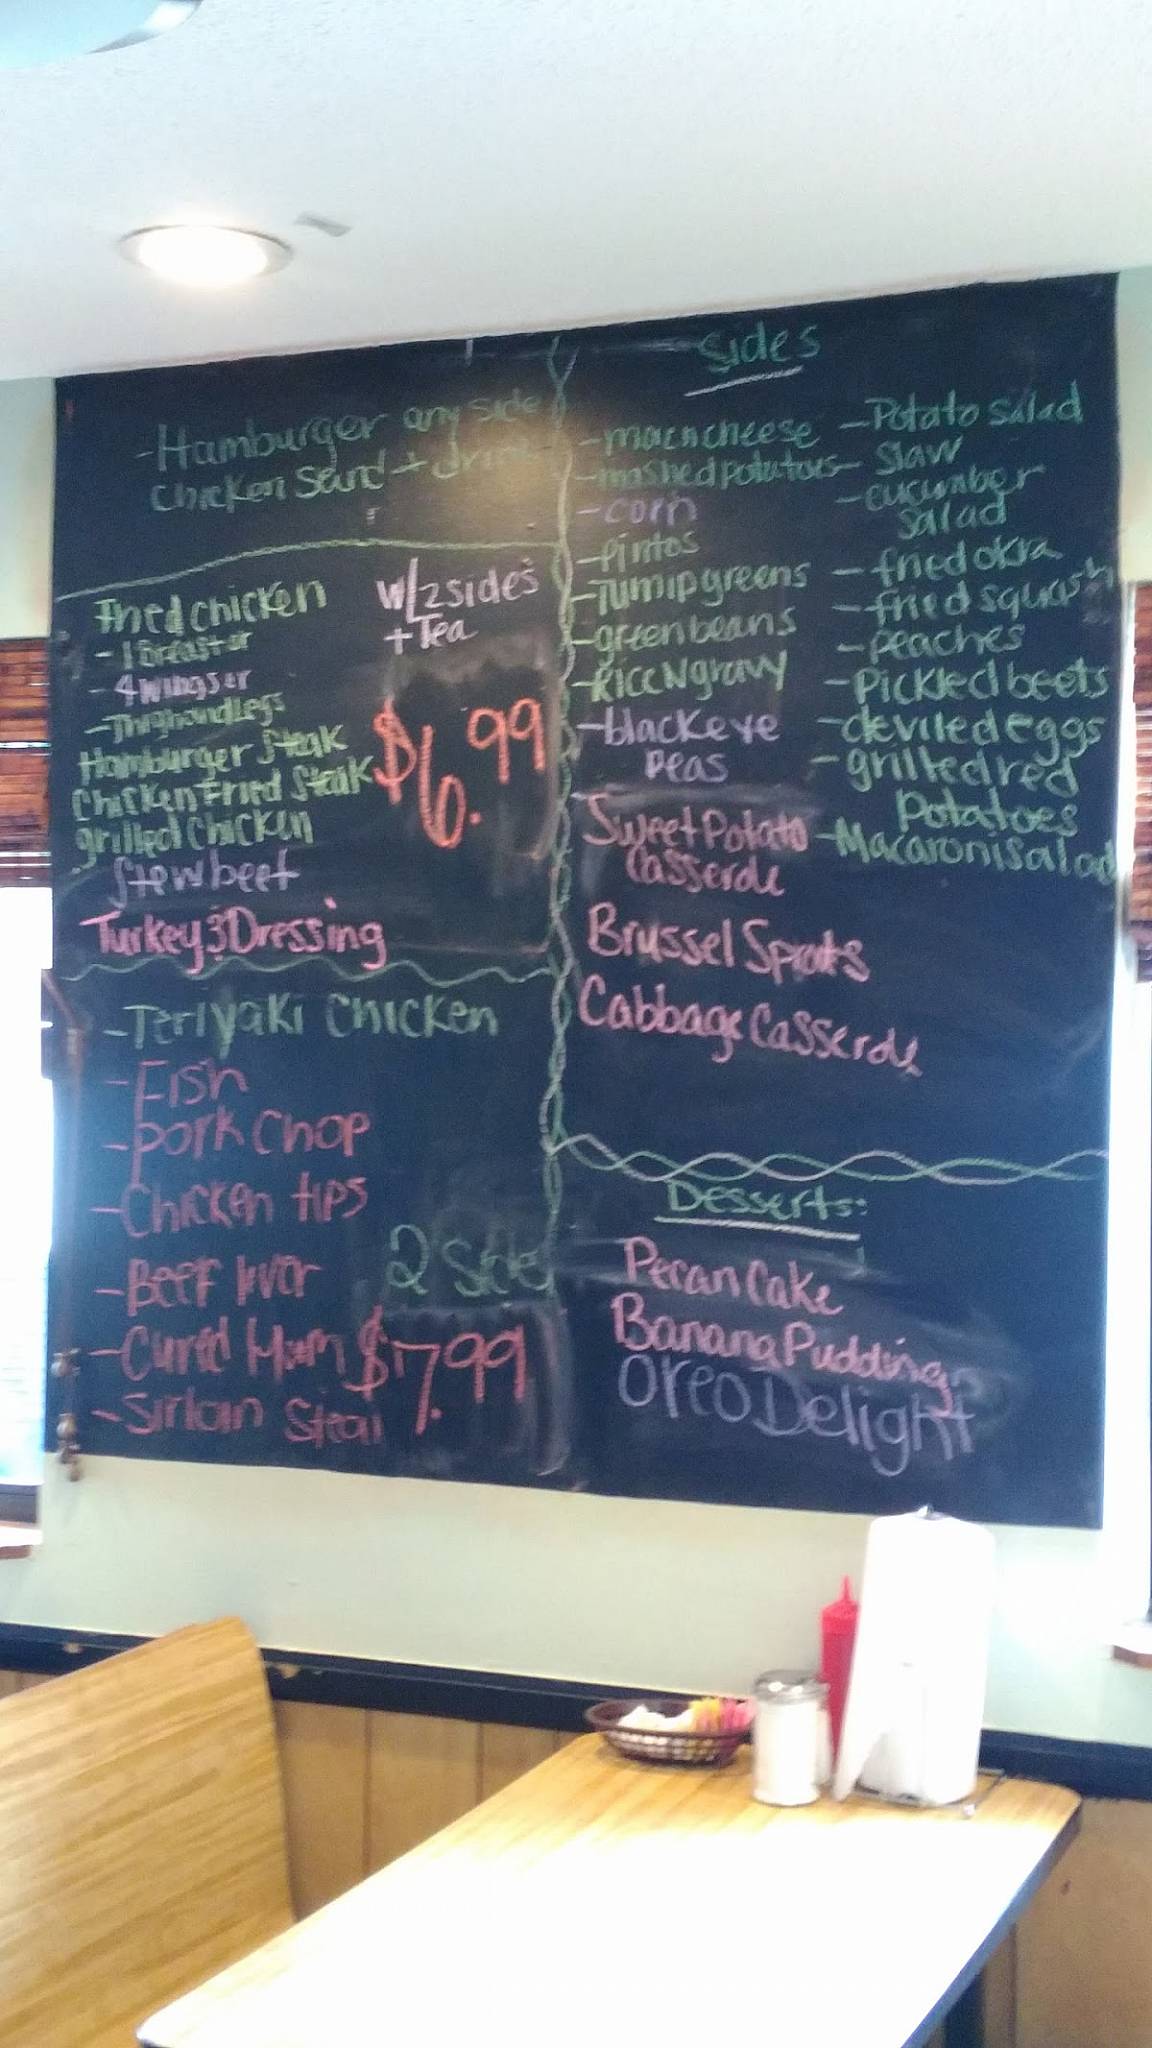 -Hamburger any side
Chicken Sand + drink
Fried chicken
- 1 Breast or
- 4 wings or
- Thigh and Legs
Hamburger Steak
Chicken Fried Steak
grilled Chicken
Stew beef
Turkey & Dressing
W/2 sides
+ Tea
$6.99
-Teriyaki Chicken
-Fish
-pork Chop
-Chicken tips
-Beef liver
-Cured Ham
-Sirloin Steak
2 Side
$7.99
Sides
-mac n cheese
-mashed potatoes
-corn
-pintos
-Turnip greens
-green beans
-Rice N gravy
-black eye
peas
Sweet Potato
Casserole
Brussel Sprouts
Cabbage Casserole
-Potato Salad
- Slaw
-cucumber
Salad
-fried okra
-fried squash
-peaches
-Pickled beets
-deviled eggs
-grilled red
Potatoes
-Macaroni Salad
Desserts:
Pecan Cake
Banana Pudding
Oreo Delight